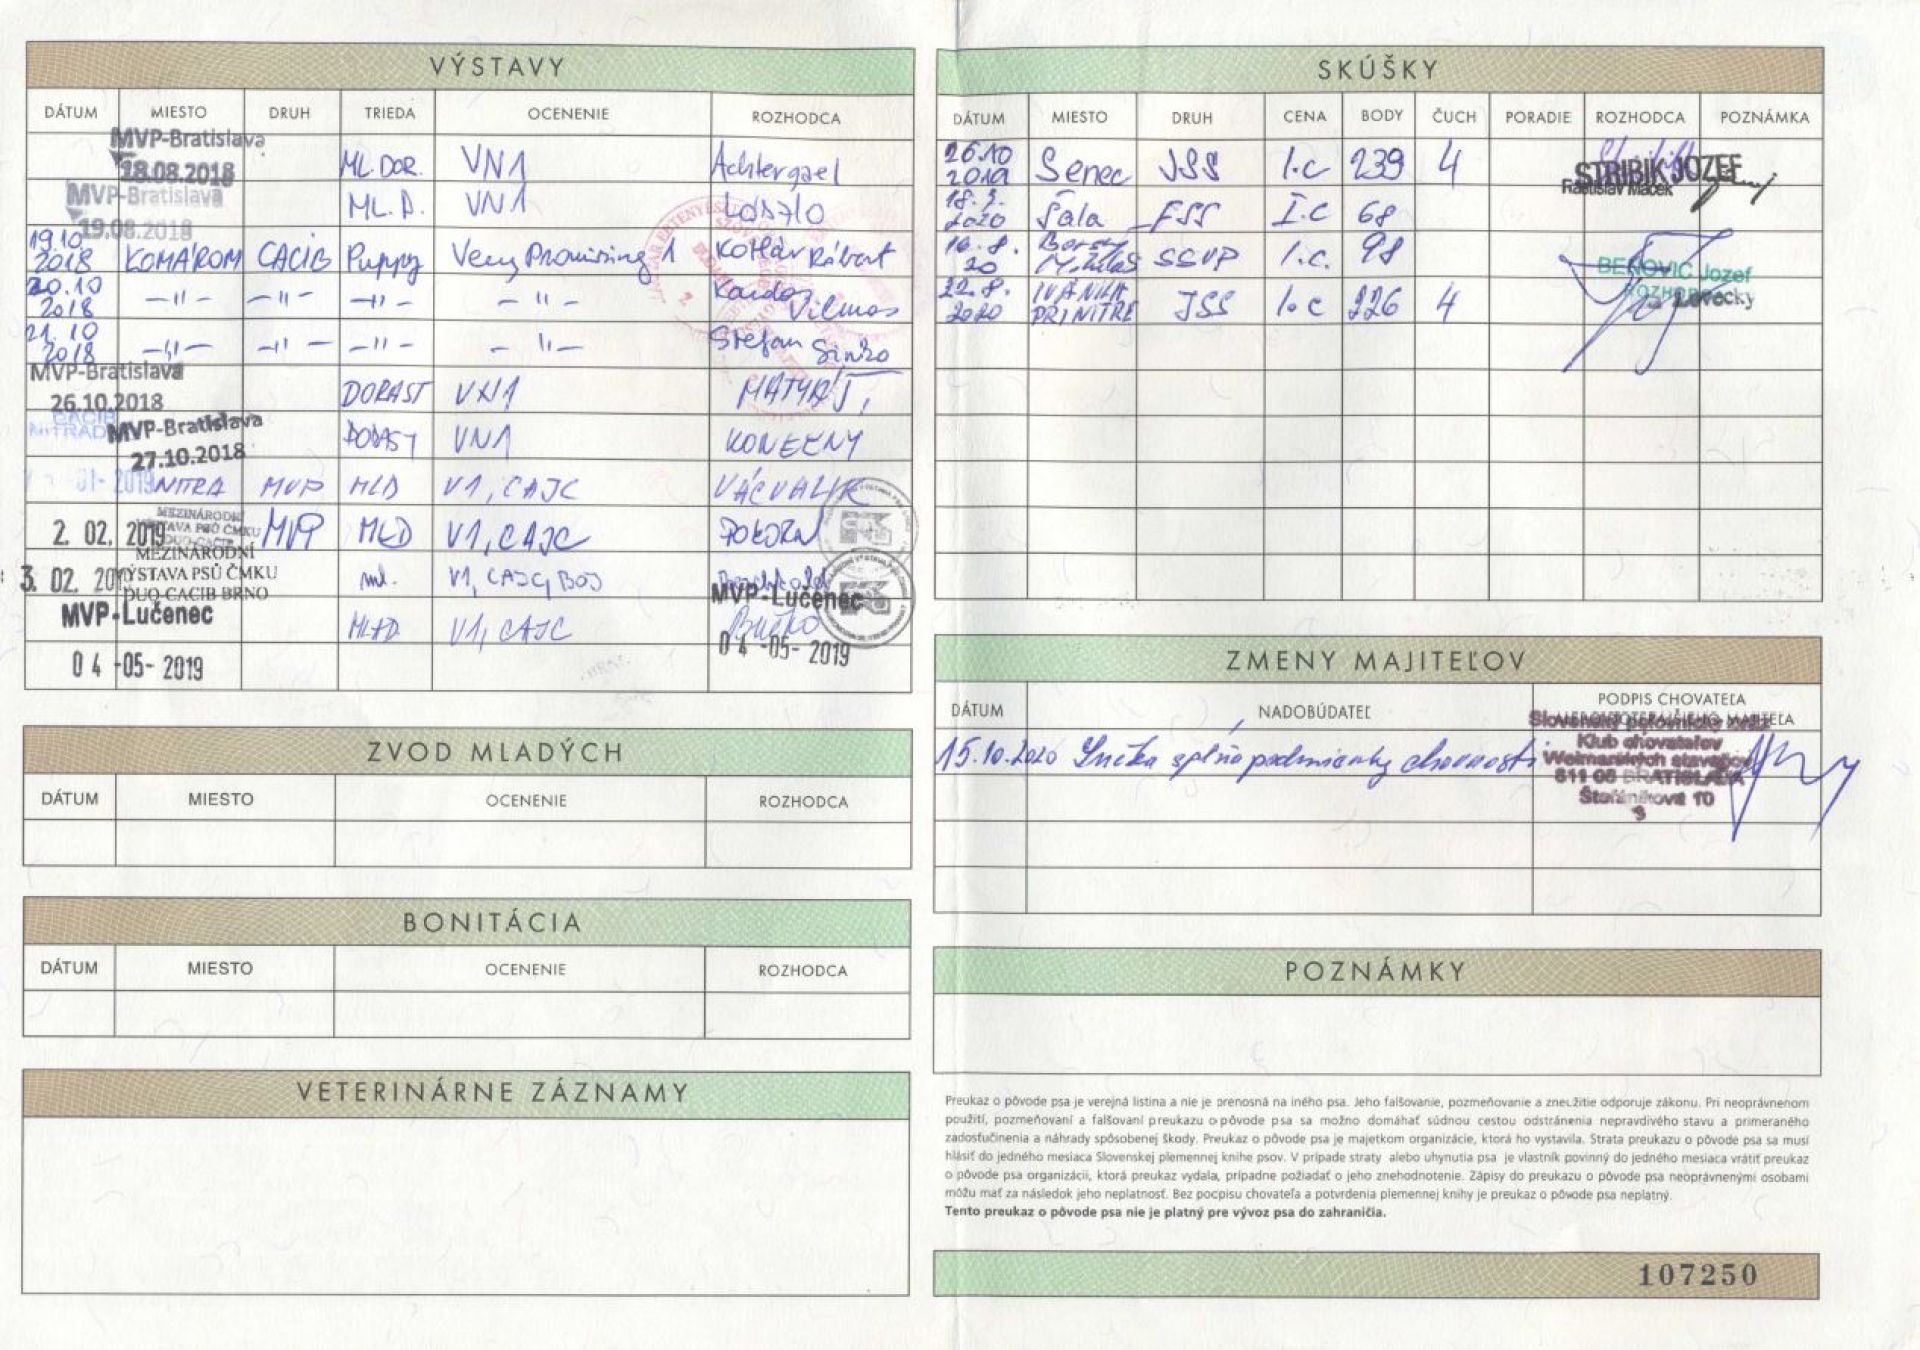 VÝSTAVY
DÁTUM MIESTO DRUH TRIEDA OCENENIE ROZHODCA
MVP-Bratislava
18.08.2018 ML.DOR. VN1 Achtergael
MVP-Bratislava
19.08.2018 ML.D. VN1
19.10 2018 KOMÁROM CACIB Puppy Very Promising 1
20.10 2018 -"- -"- -"- -"- Vilmos
21.10 2018 -"- -"- -"- -"- Stefan Sinko
MVP-Bratislava
26.10.2018 DORAST VN1
CACIB
MVP-Bratislava
27.10.2018 DORAST VN1 KONEČNY
01-2019 NITRA MVP MLD V1, CAJC VÁCVALIK
2. 02. 2019 MVP MLD V1, CAJC
MEZINÁRODNÍ
MEZINÁRODNÍ
VÝSTAVA PSŮ ČMKU
DUO-CACIB BRNO
3. 02. ml. V1, CAJC, BOJ
MVP-Lučenec MLAD V1, CAJC Butko
MVP-Lučenec
04 -05- 2019 04 -05- 2019
ZVOD MLADÝCH
DÁTUM MIESTO OCENENIE ROZHODCA
BONITÁCIA
DÁTUM MIESTO OCENENIE ROZHODCA
VETERINÁRNE ZÁZNAMY
SKÚŠKY
DÁTUM MIESTO DRUH CENA BODY ČUCH PORADIE ROZHODCA POZNÁMKA
26.10 2019 Senec JSS I.c 239 4 STRIBIK JOZEF
Rastislav Macek
18. 7. 2020 Šala FSS I.C 68
16. 8. 20 SSVP I.c. 98
BENOVIC Jozef
22.8. 2020 IVANKA PRI NITRE JSS I.c 226 4 Lovecky
ZMENY MAJITEĽOV
DÁTUM NADOBÚDATEĽ PODPIS CHOVATEĽA
15.10.2020 Sučka splňa podmienky chovnosti
Klub chovateľov
Weimarských stavačov
811 05 BRATISLAVA
Štefánikova 10
3
POZNÁMKY
Preukaz o pôvode psa je verejná listina a nie je prenosná na iného psa. Jeho falšovanie, pozmeňovanie a zneužitie odporuje zákonu. Pri neoprávnenom
použití, pozmeňovaní a falšovaní preukazu o pôvode psa sa možno domáhať súdnou cestou odstránenia nepravdivého stavu a primeraného
zadosťučinenia a náhrady spôsobenej škody. Preukaz o pôvode psa je majetkom organizácie, ktorá ho vystavila. Strata preukazu o pôvode psa sa musí
hlásiť do jedného mesiaca Slovenskej plemennej knihe psov. V prípade straty alebo uhynutia psa je vlastník povinný do jedného mesiaca vrátiť preukaz
o pôvode psa organizácii, ktorá preukaz vydala, prípadne požiadať o jeho znehodnotenie. Zápisy do preukazu o pôvode psa neoprávnenými osobami
môžu mať za následok jeho neplatnosť. Bez podpisu chovateľa a potvrdenia plemennej knihy je preukaz o pôvode psa neplatný.
Tento preukaz o pôvode psa nie je platný pre vývoz psa do zahraničia.
107250